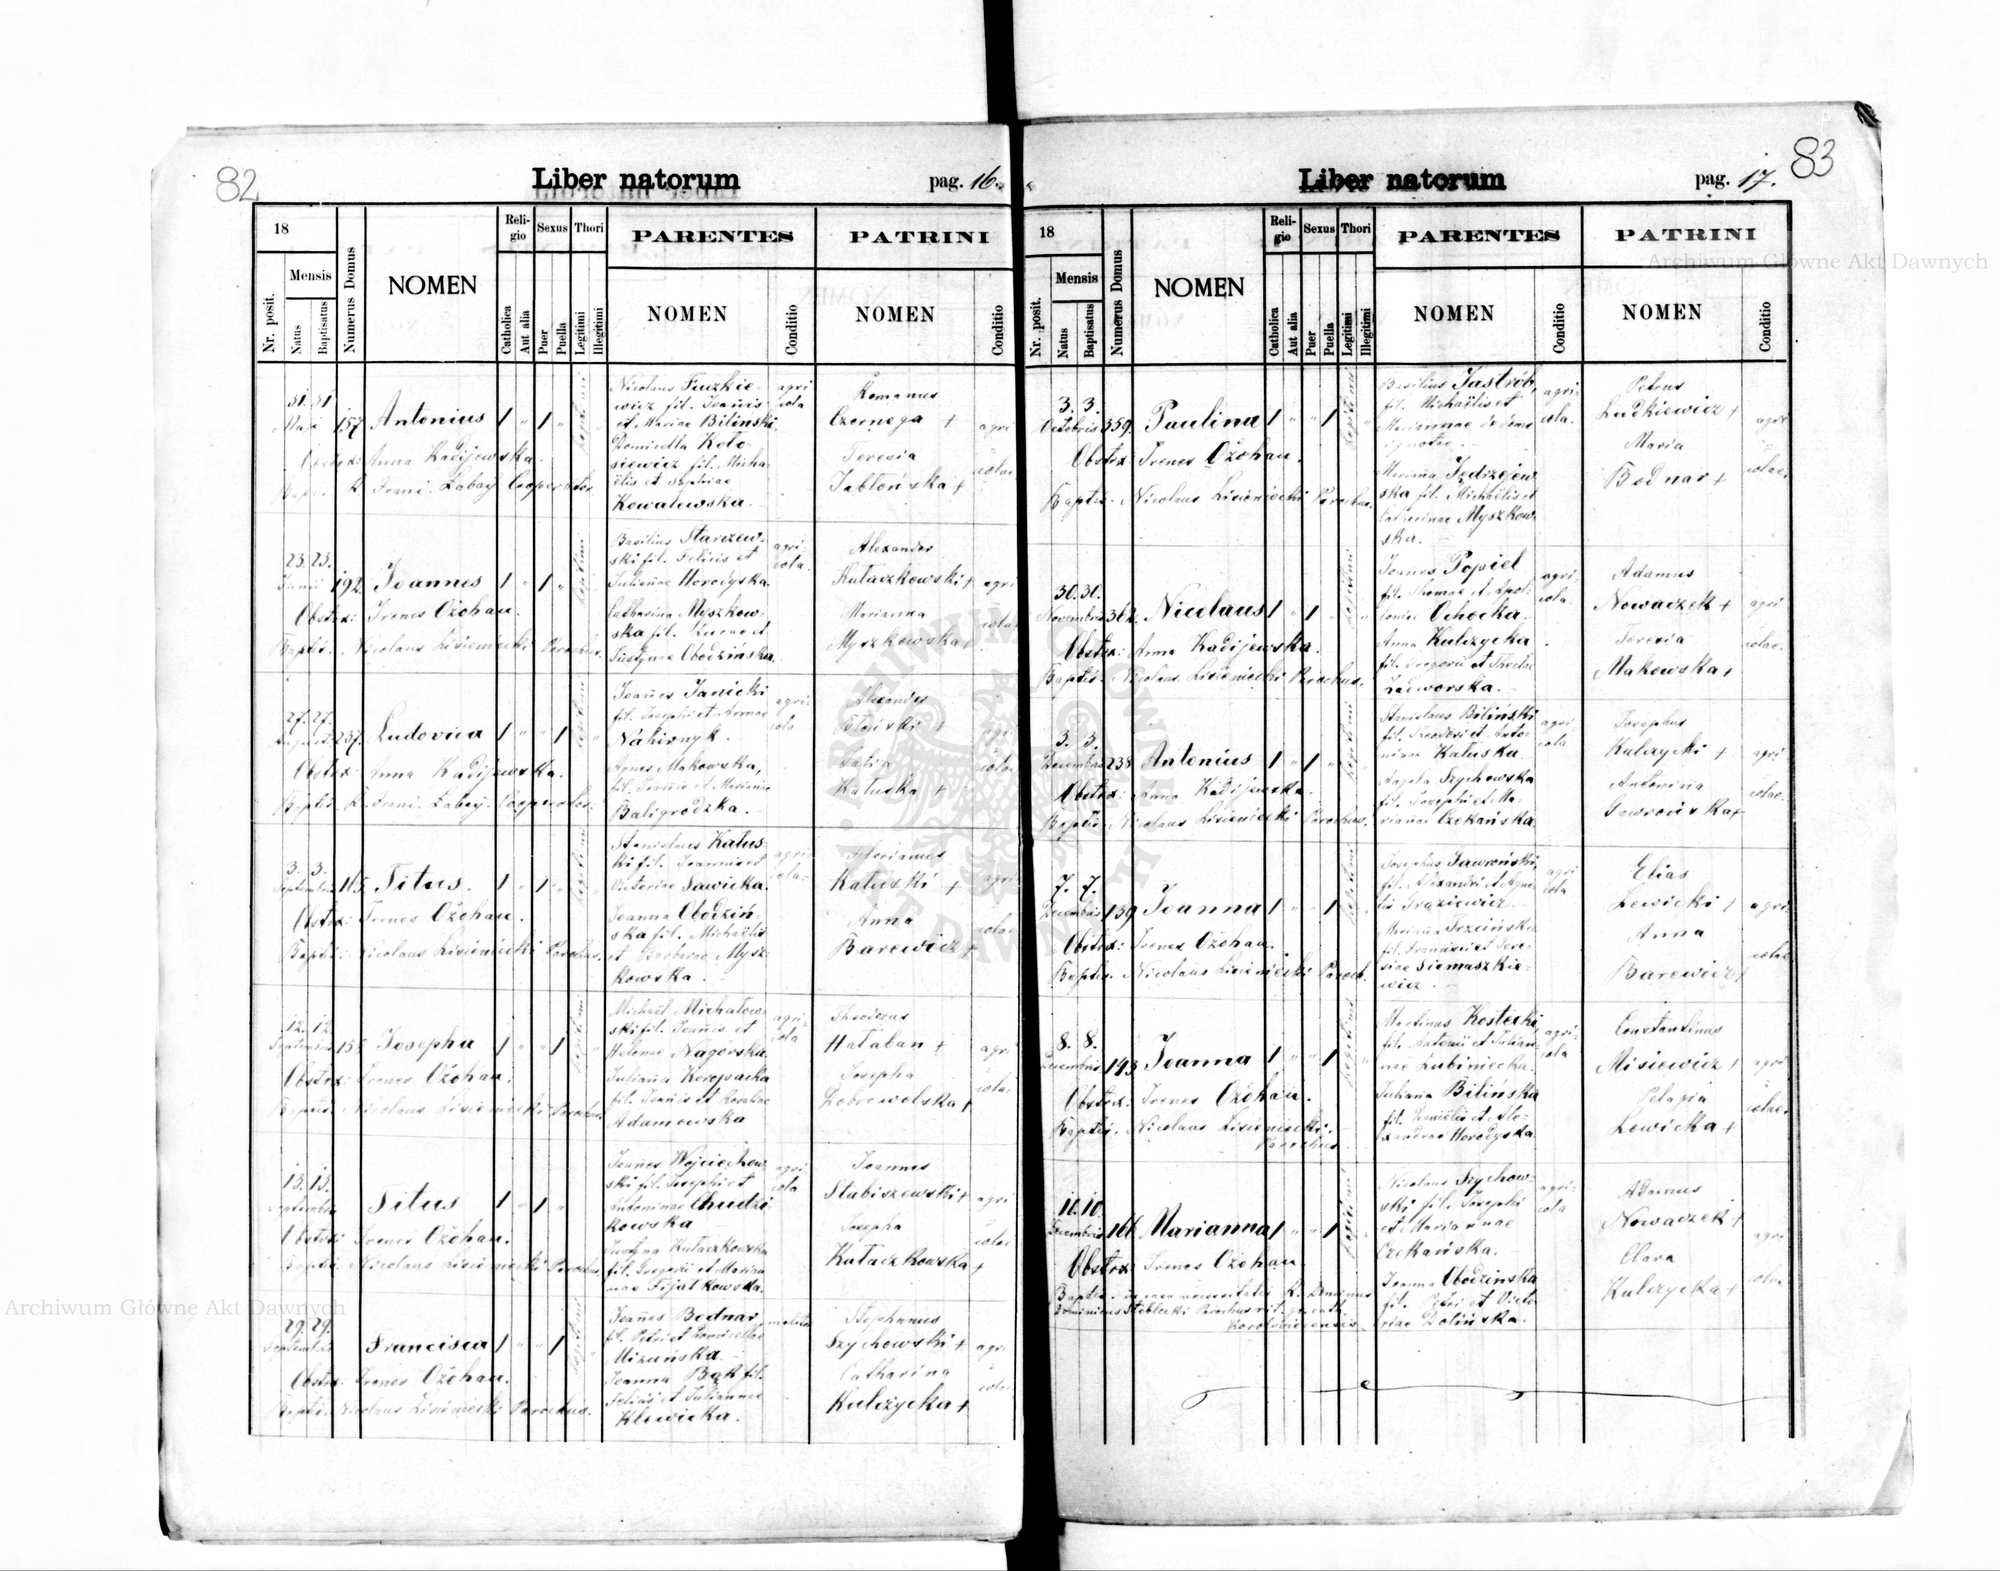 82
Liber natorum
pag. 16.
18
Nr. posit.
Mensis
Natus
Baptisatus
Numerus Domus
NOMEN
Religio
Catholica
Aut alia
Sexus
Puer
Puella
Thori
Legitimi
Illegitimi
PARENTES
NOMEN
Conditio
PATRINI
NOMEN
Conditio
31. 31
Maji
157
Antonius
1 " 1 "
Obstx: Anna Kadijewska.
Labay Cooperator
Nicolaus
wicz fil. Joannis
et Mariae Bilinski
Domicella Koło-
siewicz fil. Micha-
ëlis et Sophiae
Kowalewska.
agri
cola
Romanus
Czornega +
Teresia
Jabłońska +
agri
colae
23. 23.
Junii
192
Joannes
1 " 1 "
Obstx: Irenes Ożohan.
Baptis. Nicolaus Lisieniecki Parochus.
Basilius Starzew-
ski fil. Felicis et
Julianae Horodyska
Catharina Myszkow-
ska fil. Lucae et
Justynae Obodzinska
agri-
cola.
Alexander
Kułaczkowski +
Marianna
Myszkowska +
agri
colae
27. 27.
Augusti
237.
Ludovica
1 " " 1
Obstx: Anna Kadijewska.
Labay. Cooperator.
Joanes Janicki
fil. Josephi et Annae
Nahirnyk.
Agnes Makowska,
fil. Joannis et Marianae
Baligrodzka.
agri
cola
Julia
Kałuska +
agri
colae
3. 3.
Septembris
165
Titus.
1 " 1 "
Obstx: Irenes Ożohan.
Baptis. Nicolaus Lisieniecki Parochus.
Stanislaus Kałus-
ki fil. Joannis et
Victoriae Sawicka.
Joanna Obodziń-
ska fil. Michaëlis
et Barbarae Mysz-
kowska
agri
cola
Florianus
Kałuski +
Anna
Barewicz +
agri
colae
12. 12.
Septembris
Josepha
1 " " 1
Obstx: Irenes Ożohan.
Baptis. Nicolaus Lisieniecki Parochus.
Michaël Michałow-
ski fil. Joanis et
Helenae Nagórska
Juliana Koropacka
fil. Joanis et Rosaliae
Adamowska
agri-
cola
Theodorus
Hałaban +
Josepha
Dobrowolska +
agri
colae
13. 13.
Septembris
Titus
1 " 1 "
Obstx: Irenes Ożohan.
Baptis. Nicolaus Lisieniecki Parochus.
Joanes Wojciechow
ski fil. Josephi et
Antoninae Chudzi
kowska
Justyna Kułaczkowska
fil. Gregorii et Marian
nae Fijałkowska.
agri
cola
Joannes
Stabiszewski +
Josepha
Kułaczkowska +
agri
colae
29. 29.
Septembris
Francisca
1 " " 1
Obstx: Irenes Ożohan.
Baptis. Nicolaus Lisieniecki Parochus.
Joanes Bodnar,
fil. Petri et Domicellae
Mizuńska.
Joanna Bąk fil.
Feliciis et Julianae
Klewicka.
Stephanus
Szychowski +
Catharina
Kulczycka +
agri
colae
83
Liber natorum
pag. 17.
18
Nr. posit.
Mensis
Natus
Baptisatus
Numerus Domus
NOMEN
Religio
Catholica
Aut alia
Sexus
Puer
Puella
Thori
Legitimi
Illegitimi
PARENTES
NOMEN
Conditio
PATRINI
NOMEN
Conditio
3. 3.
Octobris
359.
Paulina
1 " " 1
Obstx: Irenes Ożohan.
Baptis. Nicolaus Lisieniecki Parochus.
Basilius Jastrób,
fil. Michaëlis et
Mariannae
Mariana Jędrzejew
ska fil. Michaëlis et
Catharinae Myszkow-
ska.
agri
cola.
Petrus
Ludkiewicz +
Maria
Bodnar +
agri
colae.
30. 30.
Novembris
362.
Nicolaus
1 " 1 "
Obstx: Anna Kadijewska.
Baptis. Nicolaus Lisieniecki Parochus.
Joanes Popiel
fil. Thomae et Apol-
loniae Ochocka.
Anna Kulczycka
fil. Gregorii et Theclae
Zadworska.
agri
cola.
Adamus
Nowaczek +
Teresia
Makowska +
agri
colae.
3. 3.
Decembris
238
Antonius
1 " 1 "
Obstx: Anna Kadijewska.
Baptis. Nicolaus Lisieniecki Parochus.
Stanislaus Biliński
fil. Theodori et Anto-
ninae Kałuska
Angela Szychowska
fil. Josephi et Ma-
rianae Czekańska.
agri
cola
Josephus
Kulczycki +
Antonina
Gawrońska +
agri
colae.
7. 7.
Decembris
139
Joanna
1 " " 1
Obstx: Irenes Ożohan.
Baptis. Nicolaus Lisieniecki Paroch.
Josephus Gawroński,
fil. Alexandri et Agne-
tis Graziewicz.
Mariana Trzcińska
fil. Francisci et Tere-
siae Siemaszkie-
wicz.
agri
cola
Elias
Lewicki +
Anna
Barewicz +
agri-
colae.
8. 8.
Decembris
143
Joanna
1 " " 1
Obstx: Irenes Ożohan.
Baptis. Nicolaus Lisieniecki.
Parochus
Martinus Kostecki,
fil. Antonii et Julian-
nae Lubiniecka.
Juliana Bilińska
fil. Daniëlis et Ale-
xandrae Horodyska.
agri
cola
Constantinus
Misiewicz +
Pelagia
Lewicka +
agri
colae.
10. 10.
Decembris
166
Marianna
1 " " 1
Obstx: Irenes Ożohan.
Baptis. in casu necessitatis R. Dominus
Dominicus Steblecki Parochus rit. gr. cath.
Nicolaus Szychow-
ski fil. Josephi
et Mariannae
Czekańska.
Joanna Obodzinska
fil. Petri et Victo
riae Dolińska.
agri-
cola
Adamus
Nowaczek +
Clara
Kulczycka +
agri
colae
Archiwum Główne Akt Dawnych
Archiwum Główne Akt Dawnych
ARCHIWUM GŁÓWNE AKT DAWNYCH